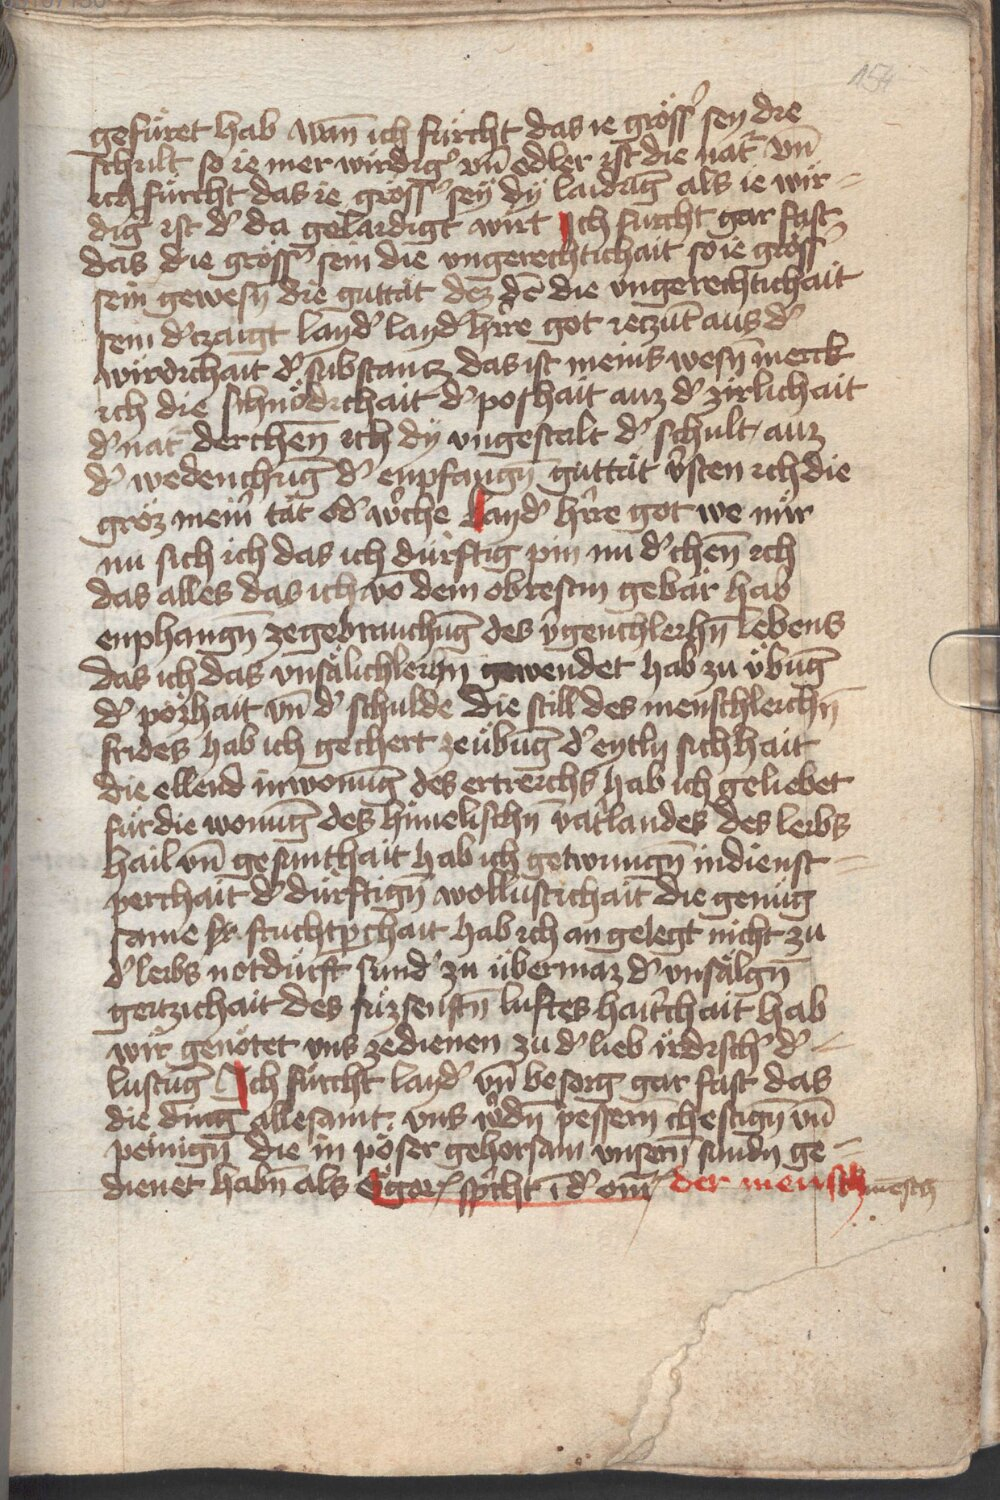 154
gefüret hab wan̄ ich fürcht das ie gröss' sey die
schult so ie mer wirdig' vn̄ edler ist die nat' vn̄
ich fürcht das ie gröss' sey dy laidūg als ie wir=
dig ist d' da gelaidigt wirt Ich furcht gar fast
das die gröss' sein die vngerechtichait so ie gröss'
sein gewesn̄ die guttät dez dē die vngerechtichait
sein d'tzaigt laid' laid' h're got ieczūt aus d'
wirdichait d' substancz das ist meins wesn̄ merck
ich die schnödichait d' poshait auz d' zirlichait
d' nat' derchen̄ ich dy vngestalt d' schult auz
d' wedenchūg d' enpfangn̄ guttät v'sten ich die
gröz mein' tät od' w'che Laid' h're got we mir
nu sich ich das ich dürftig pin nu d'chen̄ ich
das alles das ich vō dem obresten gebär hab
enphangn̄ zegebrauchūg des v'genchleichn̄ lebens
das ich das vnsälichleichn gewendet hab zu vbūg
d' pözhait vn̄ d' schulde Die still des menschleichn̄
frides hab ich gechert zeübūg d' eytln sichhait
die ellend inwonūg des ertreichs hab ich geliebet
für die wonūg des himelischn̄ vat'landes des leibs
hail vn̄ gesunthait hab ich getwungn̄ in dienst=
perchait d' dürftign̄ wollustichait die genüg
same fr fruchtp'chait hab ich an gelegt nicht zu
d' leibs notdürft sund' zu übermaz d' vnsälgn̄
geitzichait des süzsenftn̄ luftes hait'chait hab
wir genötet vns zedienen zu d' lieb irdisch' d'=
lustūg Ich fürcht laid' vn̄ besorg gar fast das
die ding allesamt vns w'dn̄ pessern chestign̄ vn̄
peinign̄ die in pöser gehorsam vnsern̄ sundn ge=
dienet habn̄ als G'gor' sp'icht i d' om' der mensch mēsch